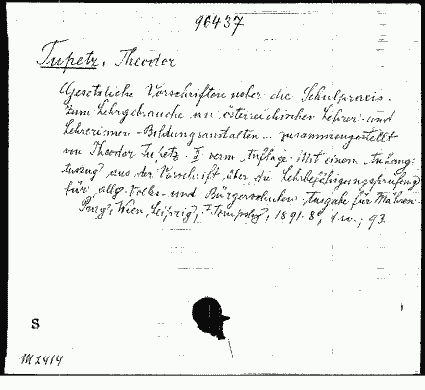 96437
Tupetz, Theodor
Gesetzliche Vorschriften ueber die Schulpraxis.
Zum Lehrgebrauche an österreichischen Lehrer- und
Lehrerinnen-Bildungsanstalten ... zusammengestellt
von Theodor Tupetz. I verm. Auflage mit einem Anhang:
Auszug aus der Vorschrift über die Lehrbefähigungsprüfung
für allg. Volks- und Bürgerschulen. Ausgabe für Mähren.
Prag, Wien, Leipzig, F. Tempsky, 1891. 8°, 93.
S
M2414